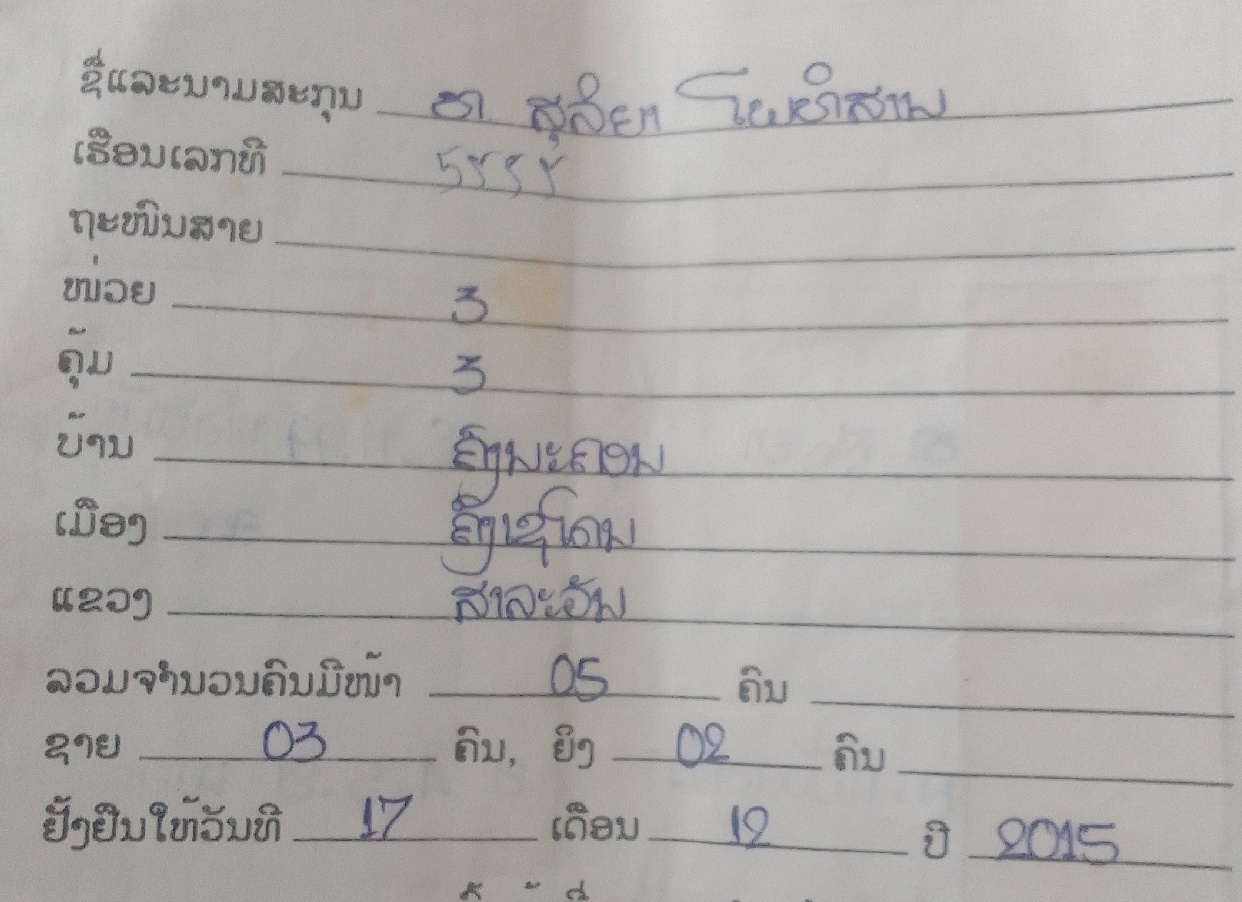 ຊື່ແລະນາມສະກຸນ ທ ສຸລິຍາ ໂພທິສານ
ເຮືອນເລກທີ
ຖະໜົນສາຍ
ໜ່ວຍ 3
ຄຸ້ມ 3
ບ້ານ ຄົງນະຄອນ
ເມືອງ ຄົງເຊໂດນ
ແຂວງ ສາລະວັນ
ລວມຈຳນວນຄົນມີໜ້າ 05 ຄົນ
ຊາຍ 03 ຄົນ, ຍິງ 02 ຄົນ
ຢັ້ງຢືນໃຫ້ວັນທີ 17 ເດືອນ 12 ປີ 2015